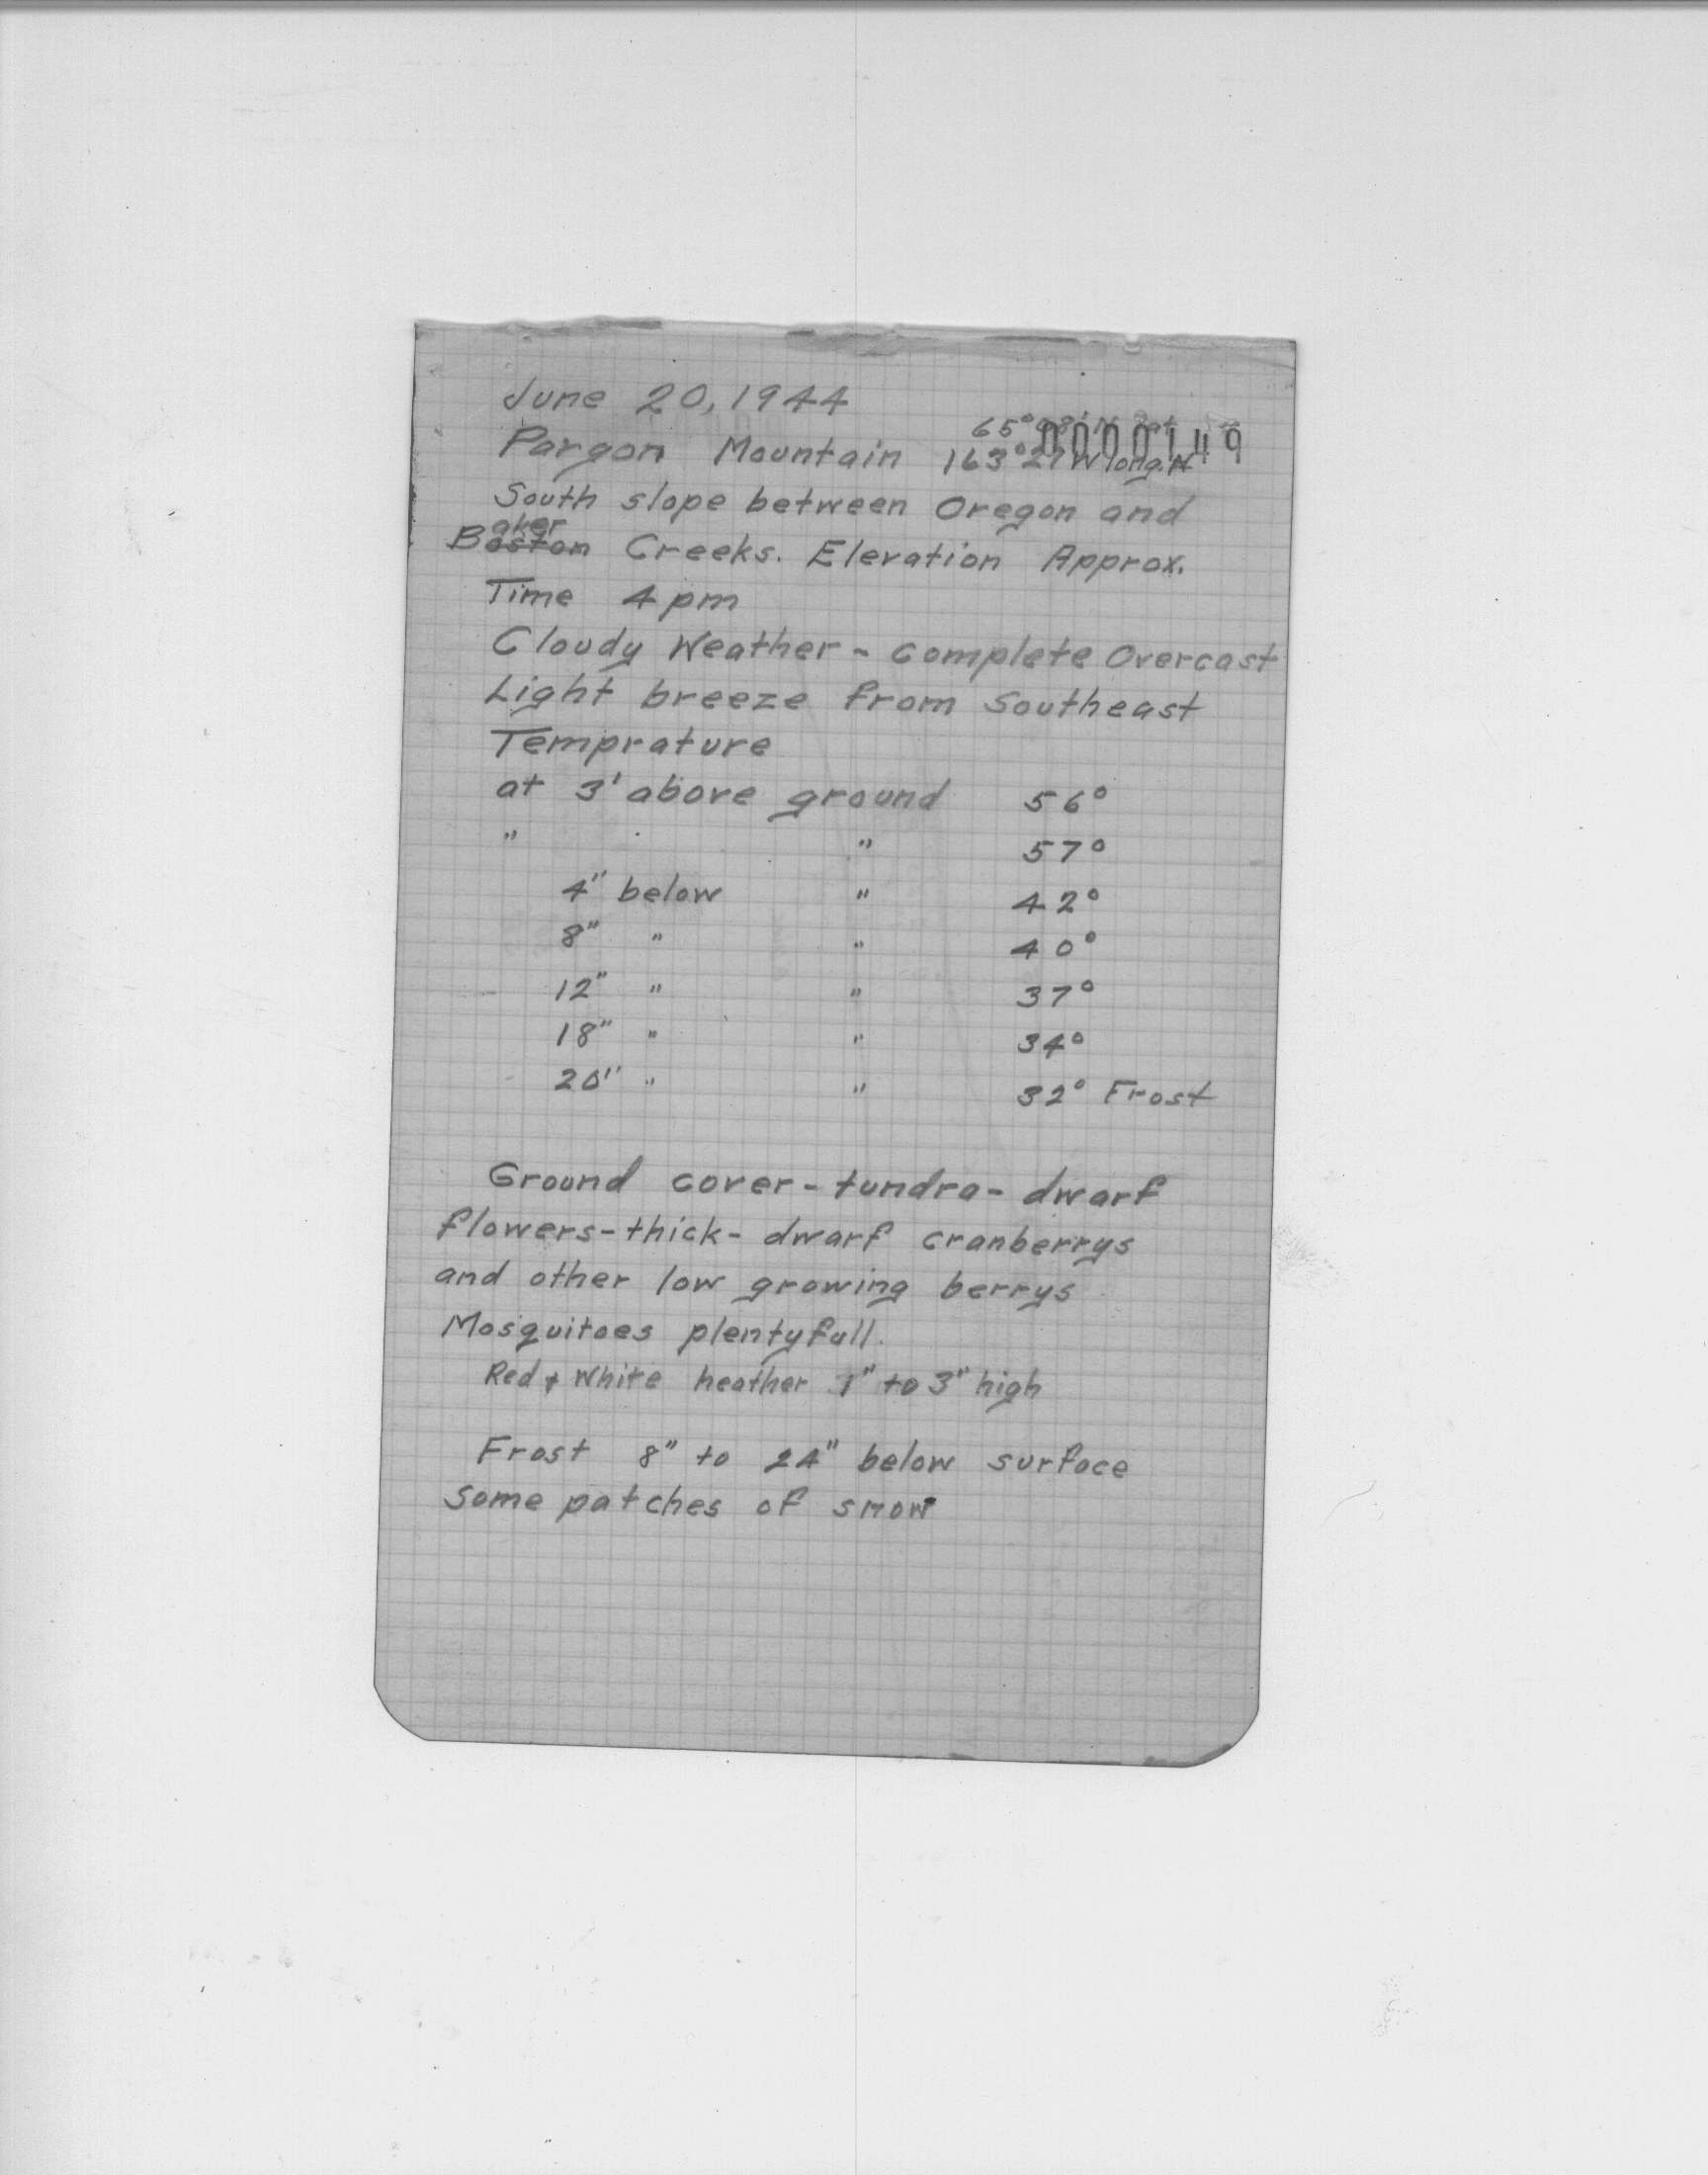 June 20, 1944
65°
0000149
Pargon Mountain 163°27'W long.
South slope between Oregon and
aker
Boston Creeks. Elevation Approx.
Time 4 pm
Cloudy Weather - Complete Overcast
Light breeze from Southeast
Temprature
at 3' above ground 56°
" " 57°
4" below " 42°
8" " " 40°
12" " " 37°
18" " " 34°
20" " " 32° Frost
Ground cover - tundra - dwarf
flowers - thick - dwarf cranberrys
and other low growing berrys
Mosquitoes plentyfull.
Red & White heather 1" to 3" high
Frost 8" to 24" below surface
Some patches of snow